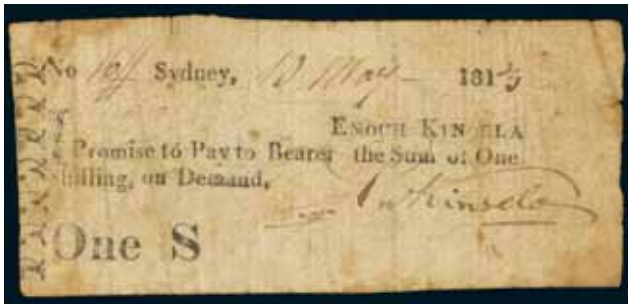 No Sydney, 12 May 181
ENOCH KINSELA
Promise to Pay to Bearer the Sum of One
hilling, on Demand,
Kinsela
One S